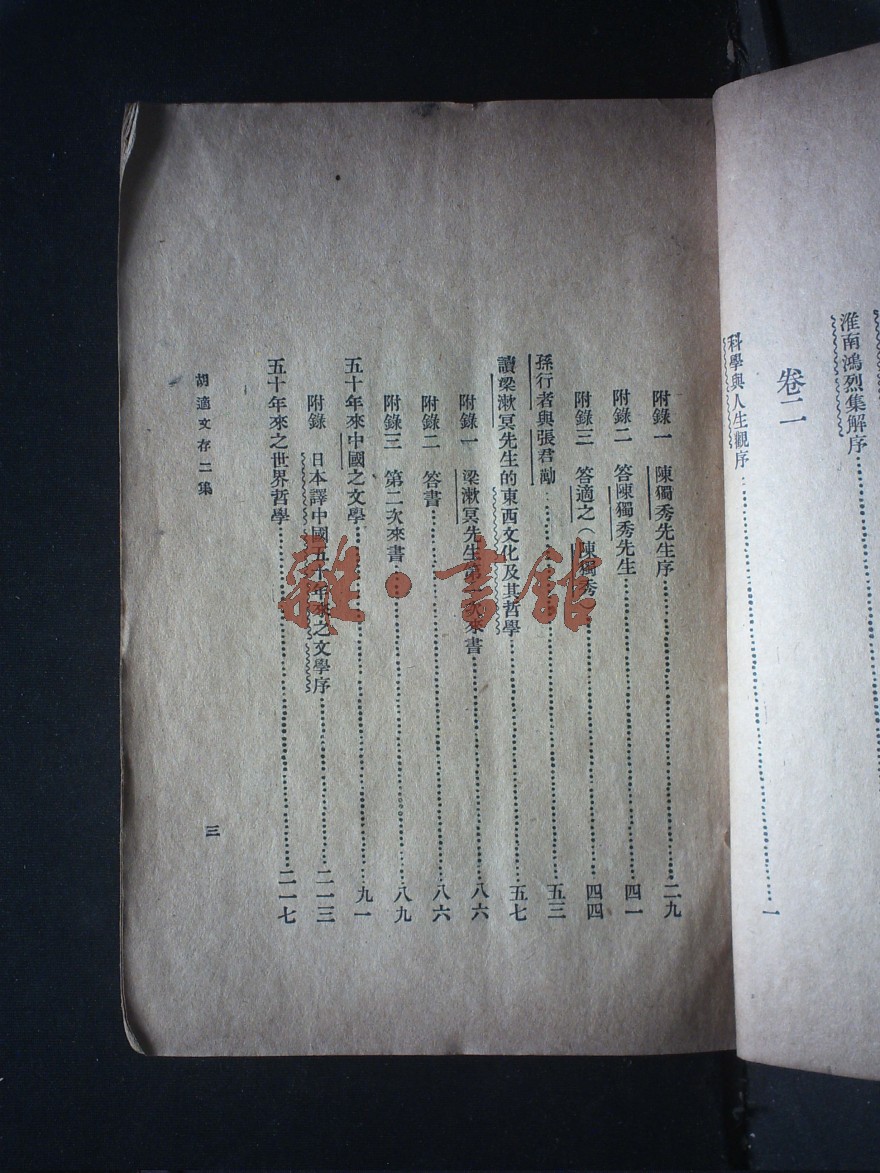 淮南鴻烈集解序
卷二
科學與人生觀序 一
附錄一 陳獨秀先生序 二九
附錄二 答陳獨秀先生 四一
附錄三 答適之（陳獨秀） 四四
孫行者與張君勱 五三
讀梁漱冥先生的東西文化及其哲學 五七
附錄一 梁漱冥先生第一次來書 八六
附錄二 答書 八六
附錄三 第二次來書 八九
五十年來中國之文學 九一
附錄 日本譯中國五十年來之文學序 二一三
五十年來之世界哲學 二一七
胡適文存二集
三
雜·書館